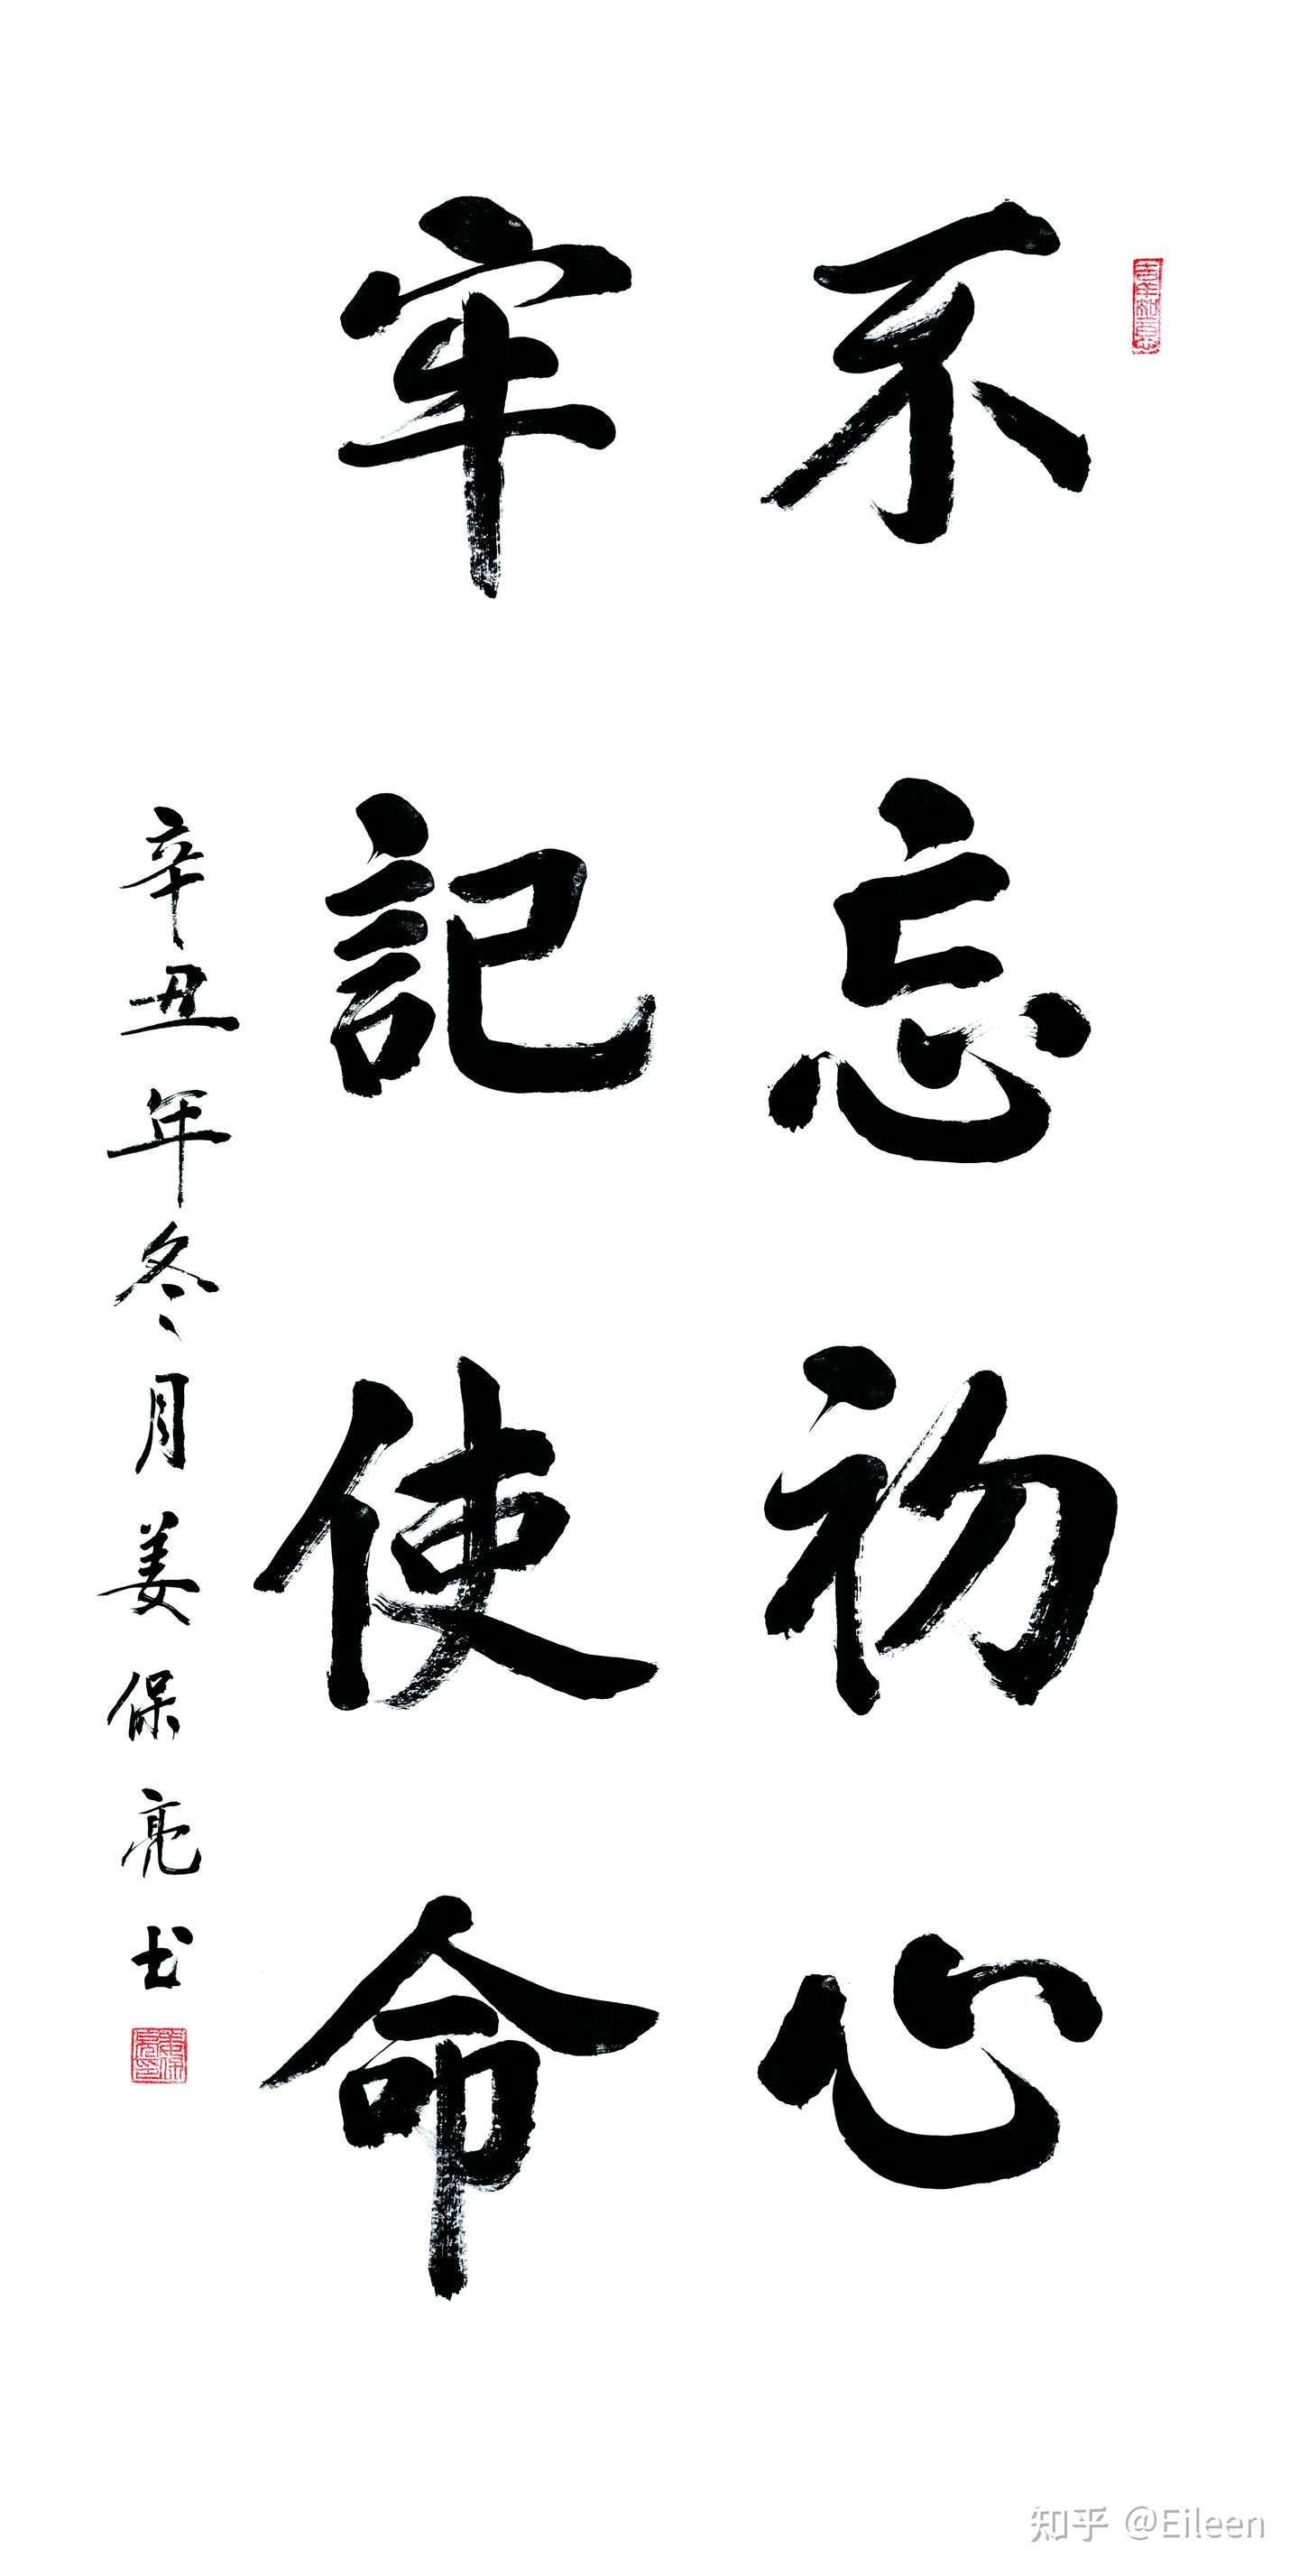 不忘初心
牢記使命
辛丑年冬月姜保亮书
知乎 @Eileen